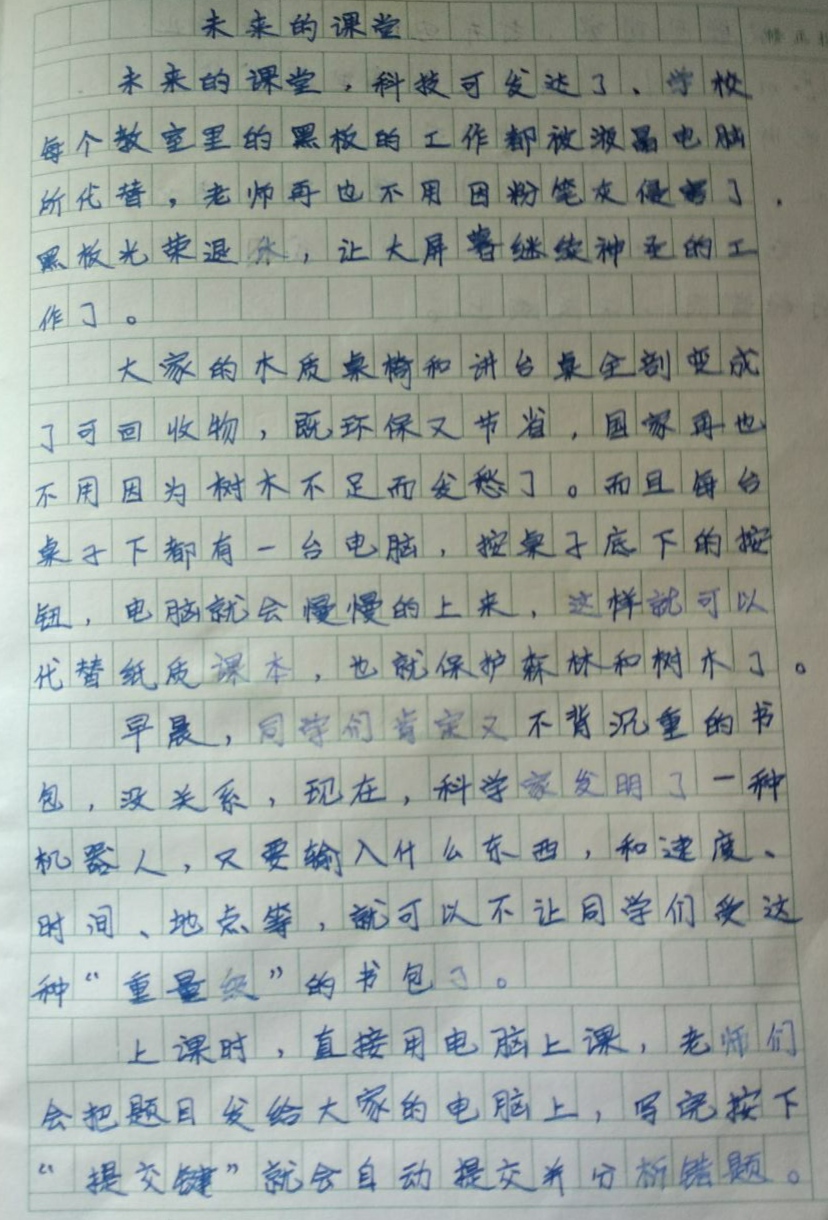 未来的课堂
未来的课堂，科技可发达了、学校
每个教室里的黑板的工作都被液晶电脑
所代替，老师再也不用因粉笔灰侵害了．
黑板光荣退休，让大屏署继续神圣的工
作了。
大家的木质桌椅和讲台桌全剖变成
了可回收物，既环保又节省，国家再也
不用因为树木不足而发愁了。而且每台
桌子下都有一台电脑，按桌子底下的按
钮，电脑就会慢慢的上来，这样就可以
代替纸质课本，也就保护森林和树木了。
早晨，同学们肯定又不背沉重的书
包，没关系，现在，科学家发明了一种
机器人，只要输入什么东西，和速度、
时间、地点等，就可以不让同学们受这
种“重量级”的书包了。
上课时，直接用电脑上课，老师们
会把题目发给大家的电脑上，写完按下
“提交键”就会自动提交并分析错题。